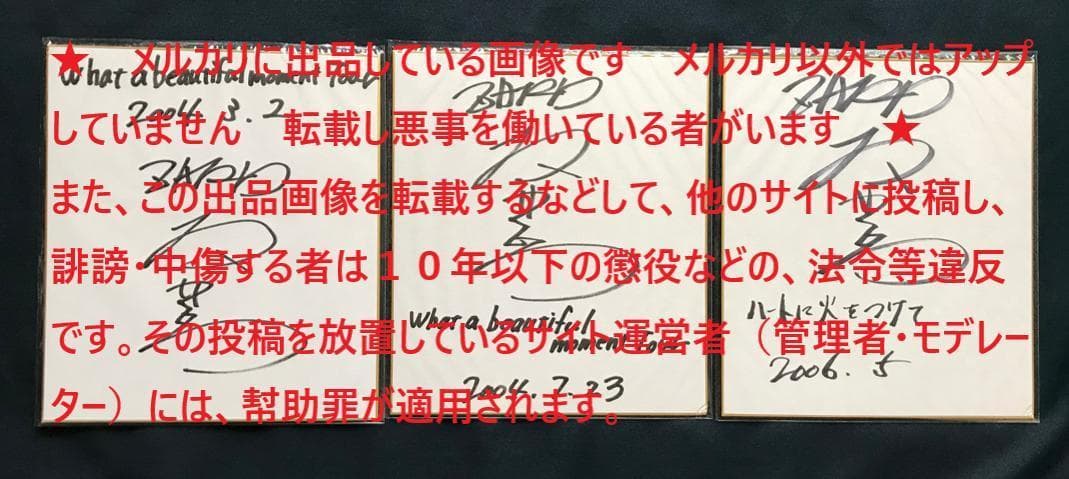 ★　メルカリに出品している画像です　メルカリ以外ではアップ
していません　転載し悪事を働いている者がいます　★
また、この出品画像を転載するなどして、他のサイトに投稿し、
誹謗・中傷する者は１０年以下の懲役などの、法令等違反
です。その投稿を放置しているサイト運営者（管理者・モデレー
ター）には、幇助罪が適用されます。
What a beautiful moment Tour
2004. 3. 2
ZARD
What a beautiful
moment Tour
2004. 7. 23
ZARD
ハートに火をつけて
2006. 5
ZARD